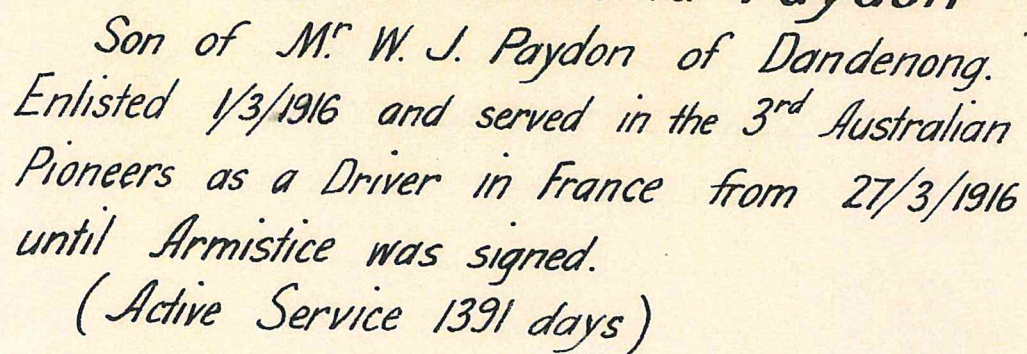 Paydon
Son of Mr. W. J. Paydon of Dandenong.
Enlisted 1/3/1916 and served in the 3rd Australian
Pioneers as a Driver in France from 27/3/1916
until Armistice was signed.
(Active Service 1391 days)